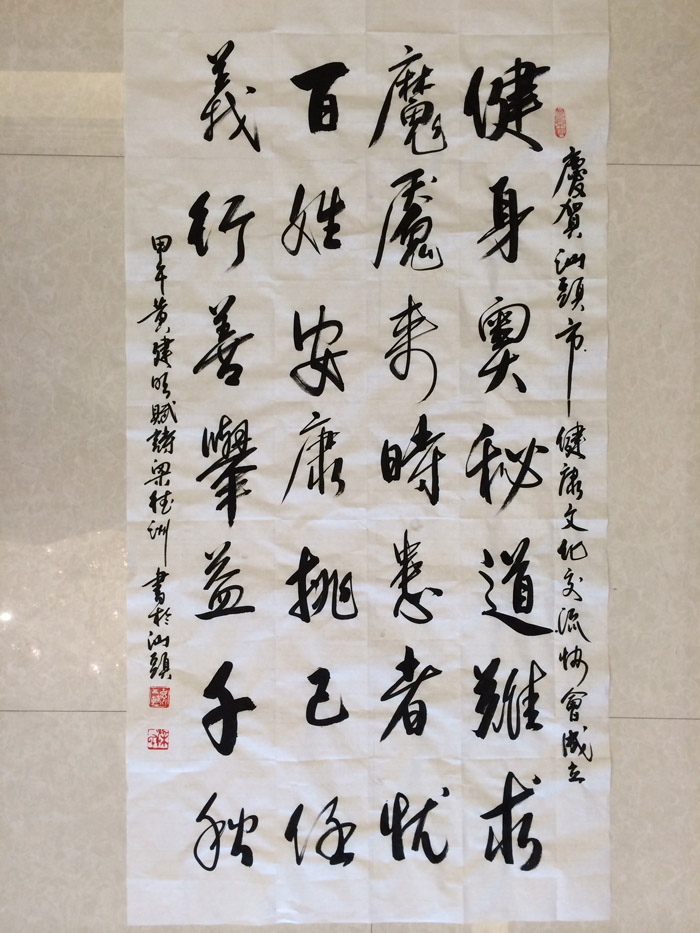 慶賀汕頭市健康文化交流協會成立
健身奧秘道難求
魔魘來時患者憂
百姓安康挑己任
義行善舉益千秋
甲午黃建明賦詩梁桂洲書於汕頭